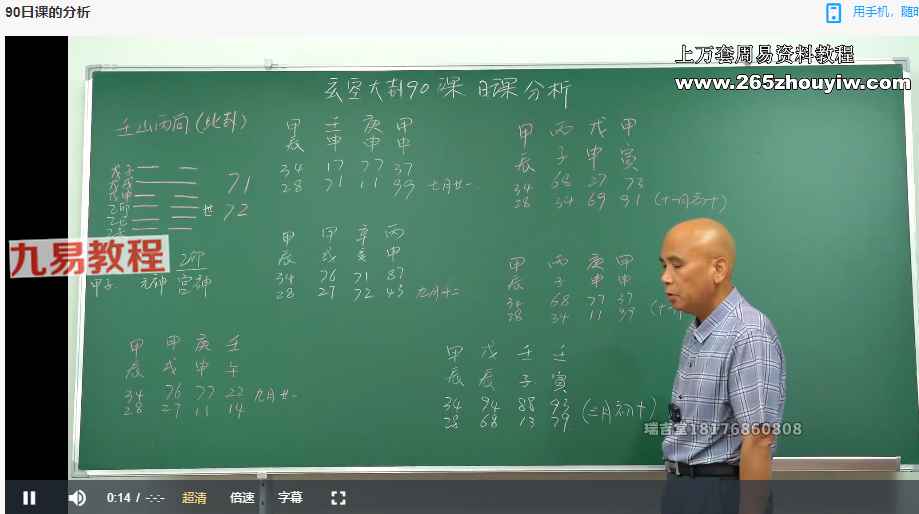 90日课的分析
用手机，随时
上万套周易资料教程
www.265zhouyiw.com
玄空大卦90课 日课分析
壬山丙向(比卦)
71
世 72
九易教程
甲子 元神 宫神
乙卯
甲 壬 庚 甲
辰 申 申 申
34 17 77 37
28 71 11 99 七月廿一
甲 丙 戊 甲
辰 子 申 寅
34 68 27 73
28 34 69 91 (十一月初十)
甲 甲 辛 丙
辰 戌 亥 申
34 76 71 87
28 27 72 43 九月十二
甲 丙 庚 甲
辰 子 申 申
34 68 77 37
28 34 11 99
甲 甲 庚 壬
辰 戌 申 午
34 76 77 22 九月廿一
28 27 11 14
甲 戊 壬 壬
辰 辰 子 寅
34 94 88 93
28 68 13 79 (二月初十)
瑞吉堂18176860808
0:14 / -:-:-
超清
倍速
字幕